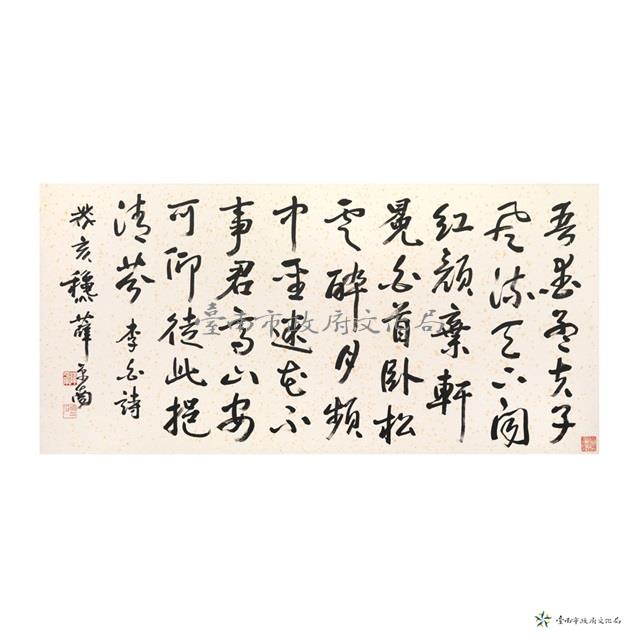 吾愛孟夫子
風流天下聞
紅顏棄軒
冕白首卧松
雲醉月頻
中聖迷花不
事君高山安
可仰徒此挹
清芬 李白詩
癸亥穐薛平南
臺南市政府文化局
臺南市政府文化局